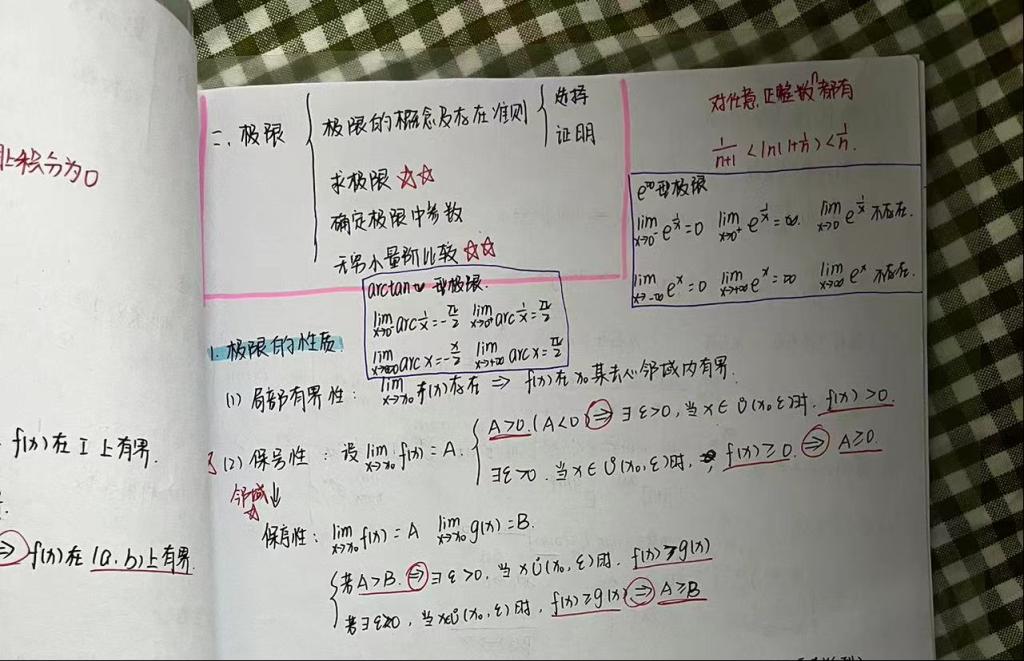 上积分为0
f(x)在 I 上有界.
⇒ f(x)在 (a,b)上有界.
二、极限
极限的概念及存在准则
选择
证明
求极限 ☆☆
确定极限中参数
无穷小量阶比较 ☆☆
对任意正整数n都有
1/(n+1) < ln(1+1/n) < 1/n.
e^∞型极限
lim x→0⁻ e^(1/x)=0 lim x→0⁺ e^(1/x)=∞. lim x→0 e^(1/x) 不存在.
lim x→-∞ e^x=0 lim x→+∞ e^x=∞ lim x→∞ e^x 不存在.
arctan∞ 型极限.
lim x→0⁻ arc 1/x=-π/2 lim x→0⁺ arc 1/x=π/2
lim x→-∞ arc x=-π/2 lim x→+∞ arc x=π/2
1. 极限的性质.
(1) 局部有界性: lim x→x₀ f(x)存在 ⇒ f(x)在 x₀ 某去心邻域内有界.
(2) 保号性: 设 lim x→x₀ f(x)=A.
A>0.(A<0) ⇒ ∃ε>0, 当 x∈Ů(x₀,ε)时, f(x)>0.
∃ε>0. 当 x∈Ů(x₀,ε)时, f(x)≥0. ⇒ A≥0.
邻域↓
☆
保序性: lim x→x₀ f(x)=A lim x→x₀ g(x)=B.
若A>B. ⇒ ∃ε>0, 当 xŮ(x₀,ε)时, f(x)≥g(x)
若∃ε>0, 当 x∈Ů(x₀,ε)时, f(x)≥g(x) ⇒ A≥B